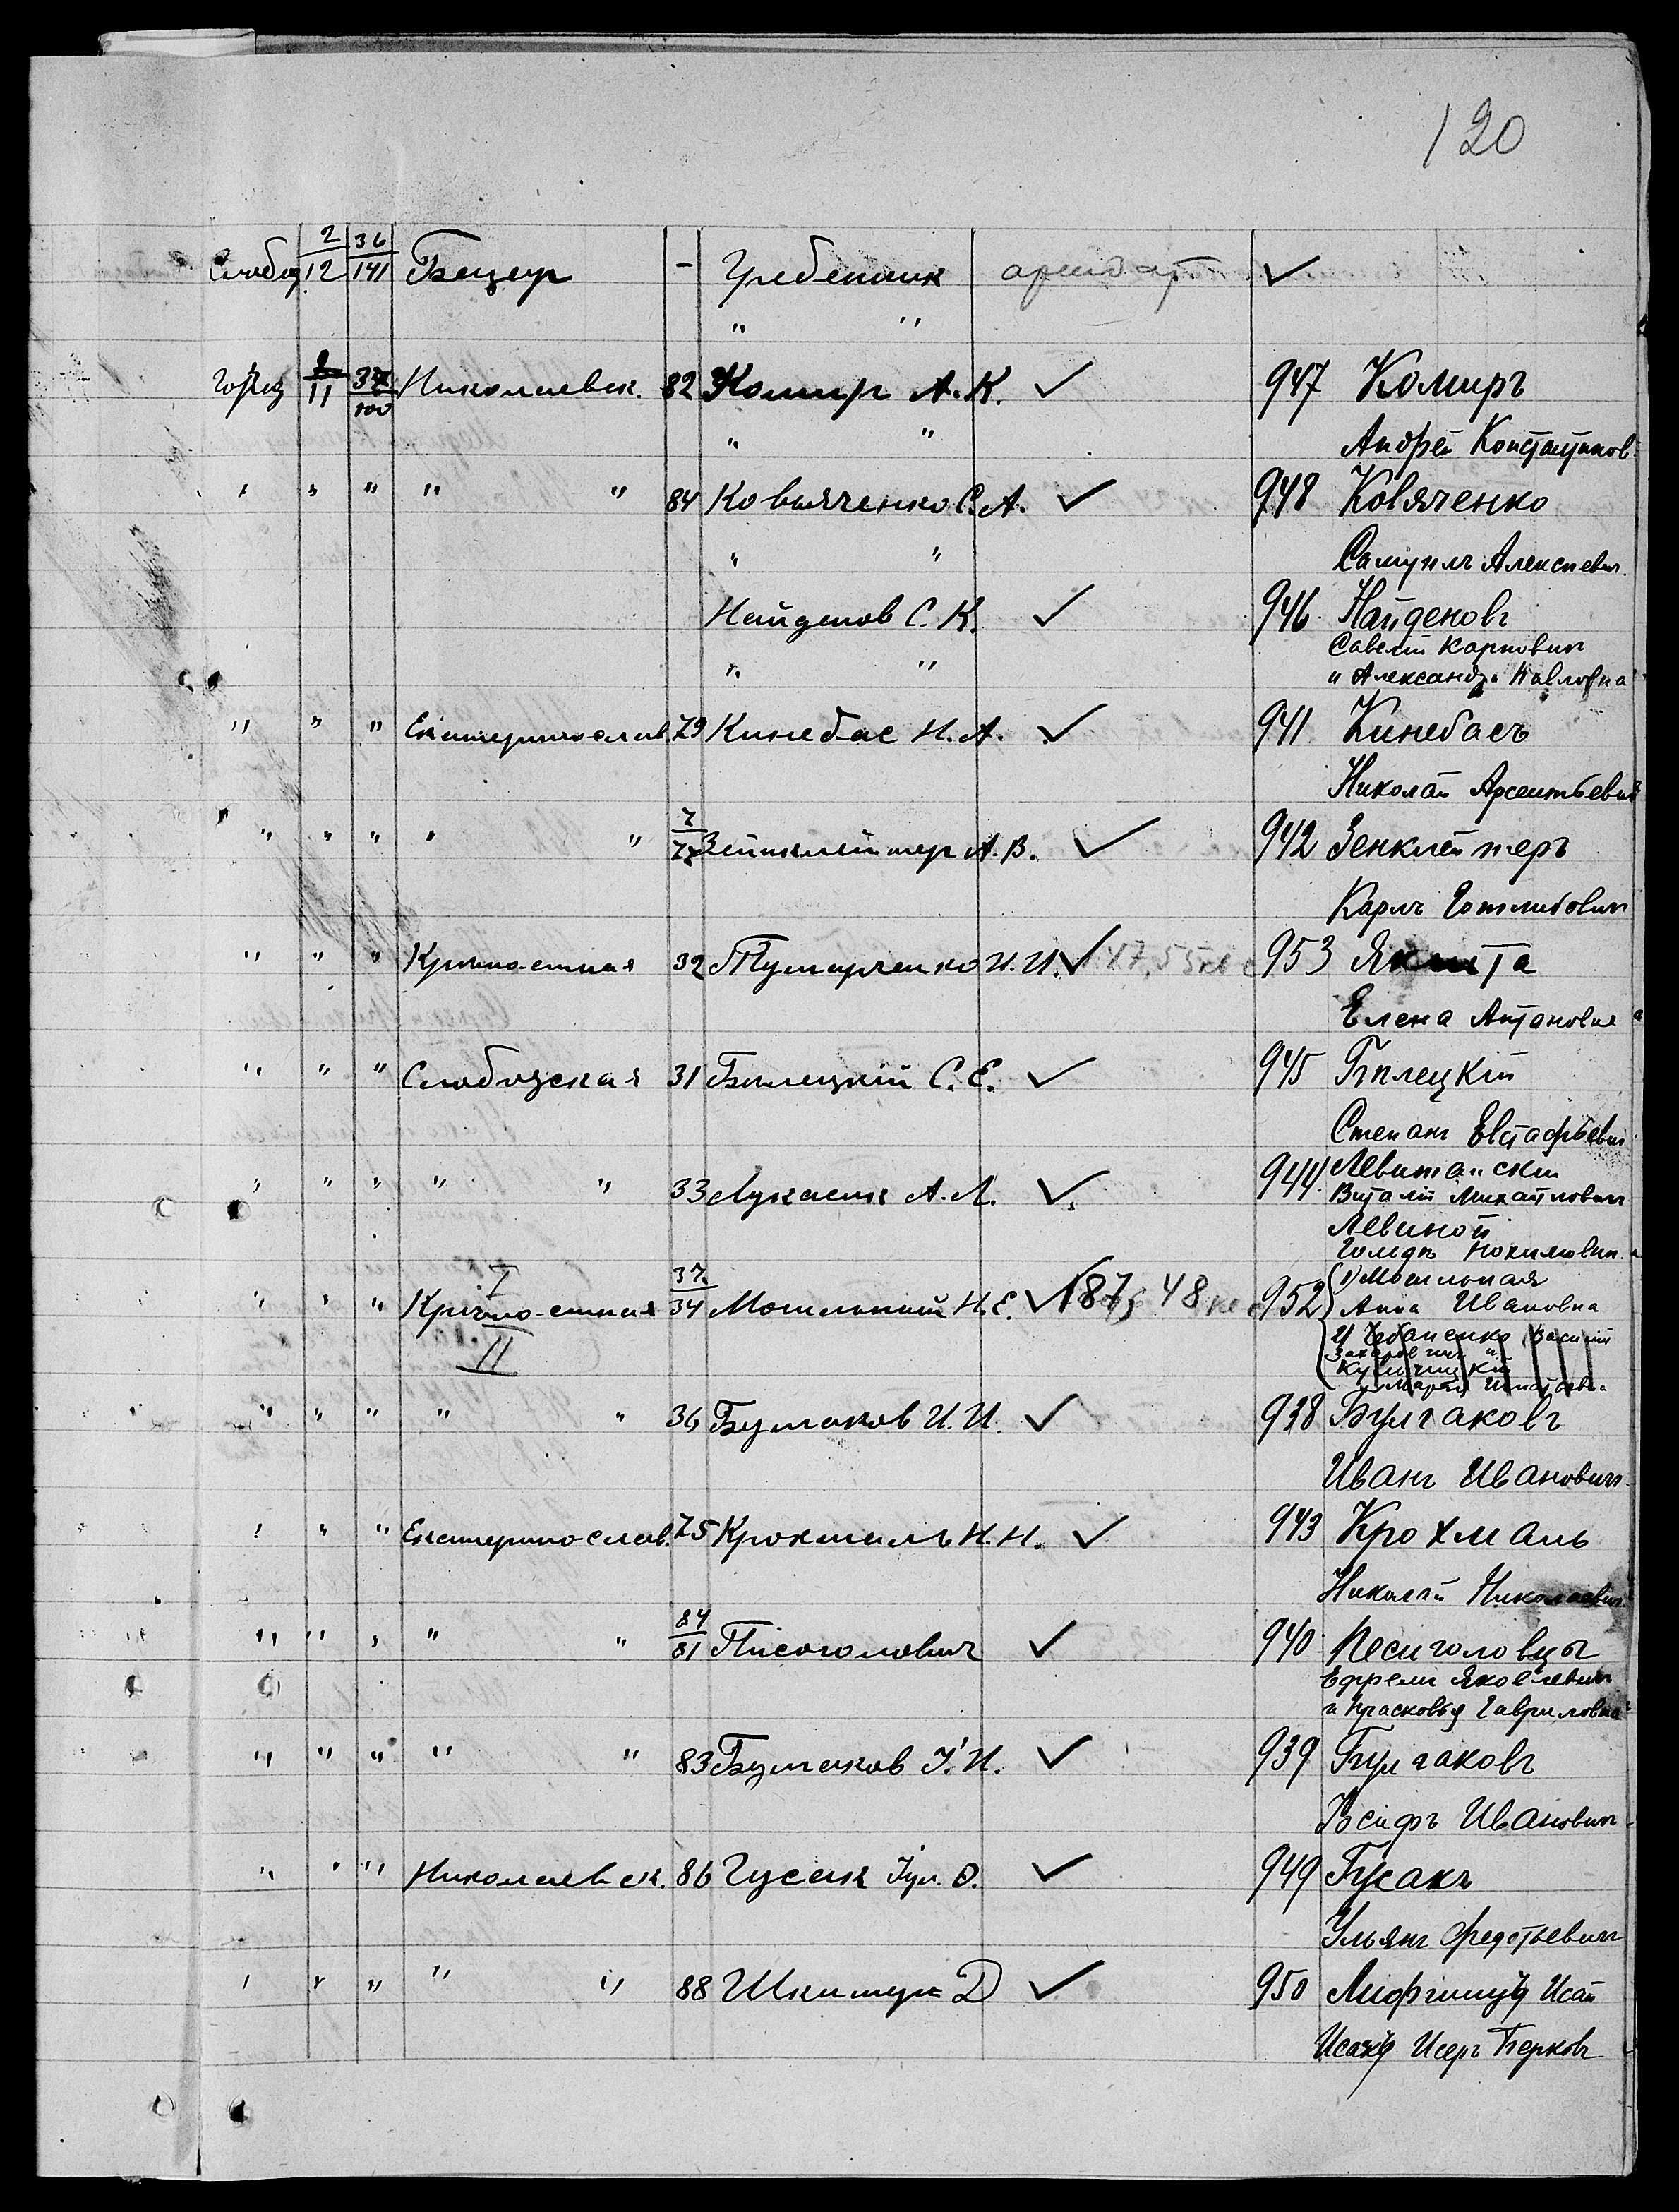 120
Слобод 2/12 36/141 Бецер - Гребенник арендат ✓
" "
Город 2/11 37/100 Николаевск. 82 Комир А. К. ✓ 947 Комиръ
" " Андрей Константинов
" " " " " 84 Ковяченко С. А. ✓ 948 Ковяченко
" " Самуилъ Алексѣевич.
Найденов С. К. ✓ 946 Найденовъ
Савелій Карповичъ
" " и Александра Павловна
" " " Екатеринослав. 79 Кинебас Н. А. ✓ 941 Кинебасъ
Николай Арсентьевич
" " " " " 7/77 Зейнклейтер А. В. ✓ 942 Зенклейтеръ
Карлъ Готлибович
" " " Крѣпостная 32 И. И. ✓ 47,55 кв с 953
Елена Антановна
" " " Слободская 31 Бѣлецкій С. Е. ✓ 945 Бѣлецкій
Степанъ Евстафьевич
" " " " " 33 Лукасик А. Л. ✓ 944 Левитанскій
Виталій Михайлович
Левиной
I
" " " Крѣпостная 37/34 Могильный Н. Е. ✓ 187, 48 кв с 952 { 1) Могильная
II
Анна Ивановна
2) Чебаненко Василій
Захарович и
" " " " " 36 Булгаков И. И. ✓ 938 Булгаковъ
Иванъ Ивановичъ
" " " Екатеринослав. 75 Крохмаль Н. Н. ✓ 943 Крохмаль
Николай Николаевич
" " " " " 84/81 Писоголович ✓ 940 Песиголовцы
Ефремъ Яковлевич
и Прасковья Гавриловна
" " " " " 83 Булгаков І. И. ✓ 939 Булгаковъ
Іосифъ Ивановичъ
" " " Николаевск. 86 Гусак Іул. Ѳ. ✓ 949 Гусакъ
Ульянъ Федотьевич
" " " " " 88 Д ✓ 950 Исай
Исеръ Берковъ